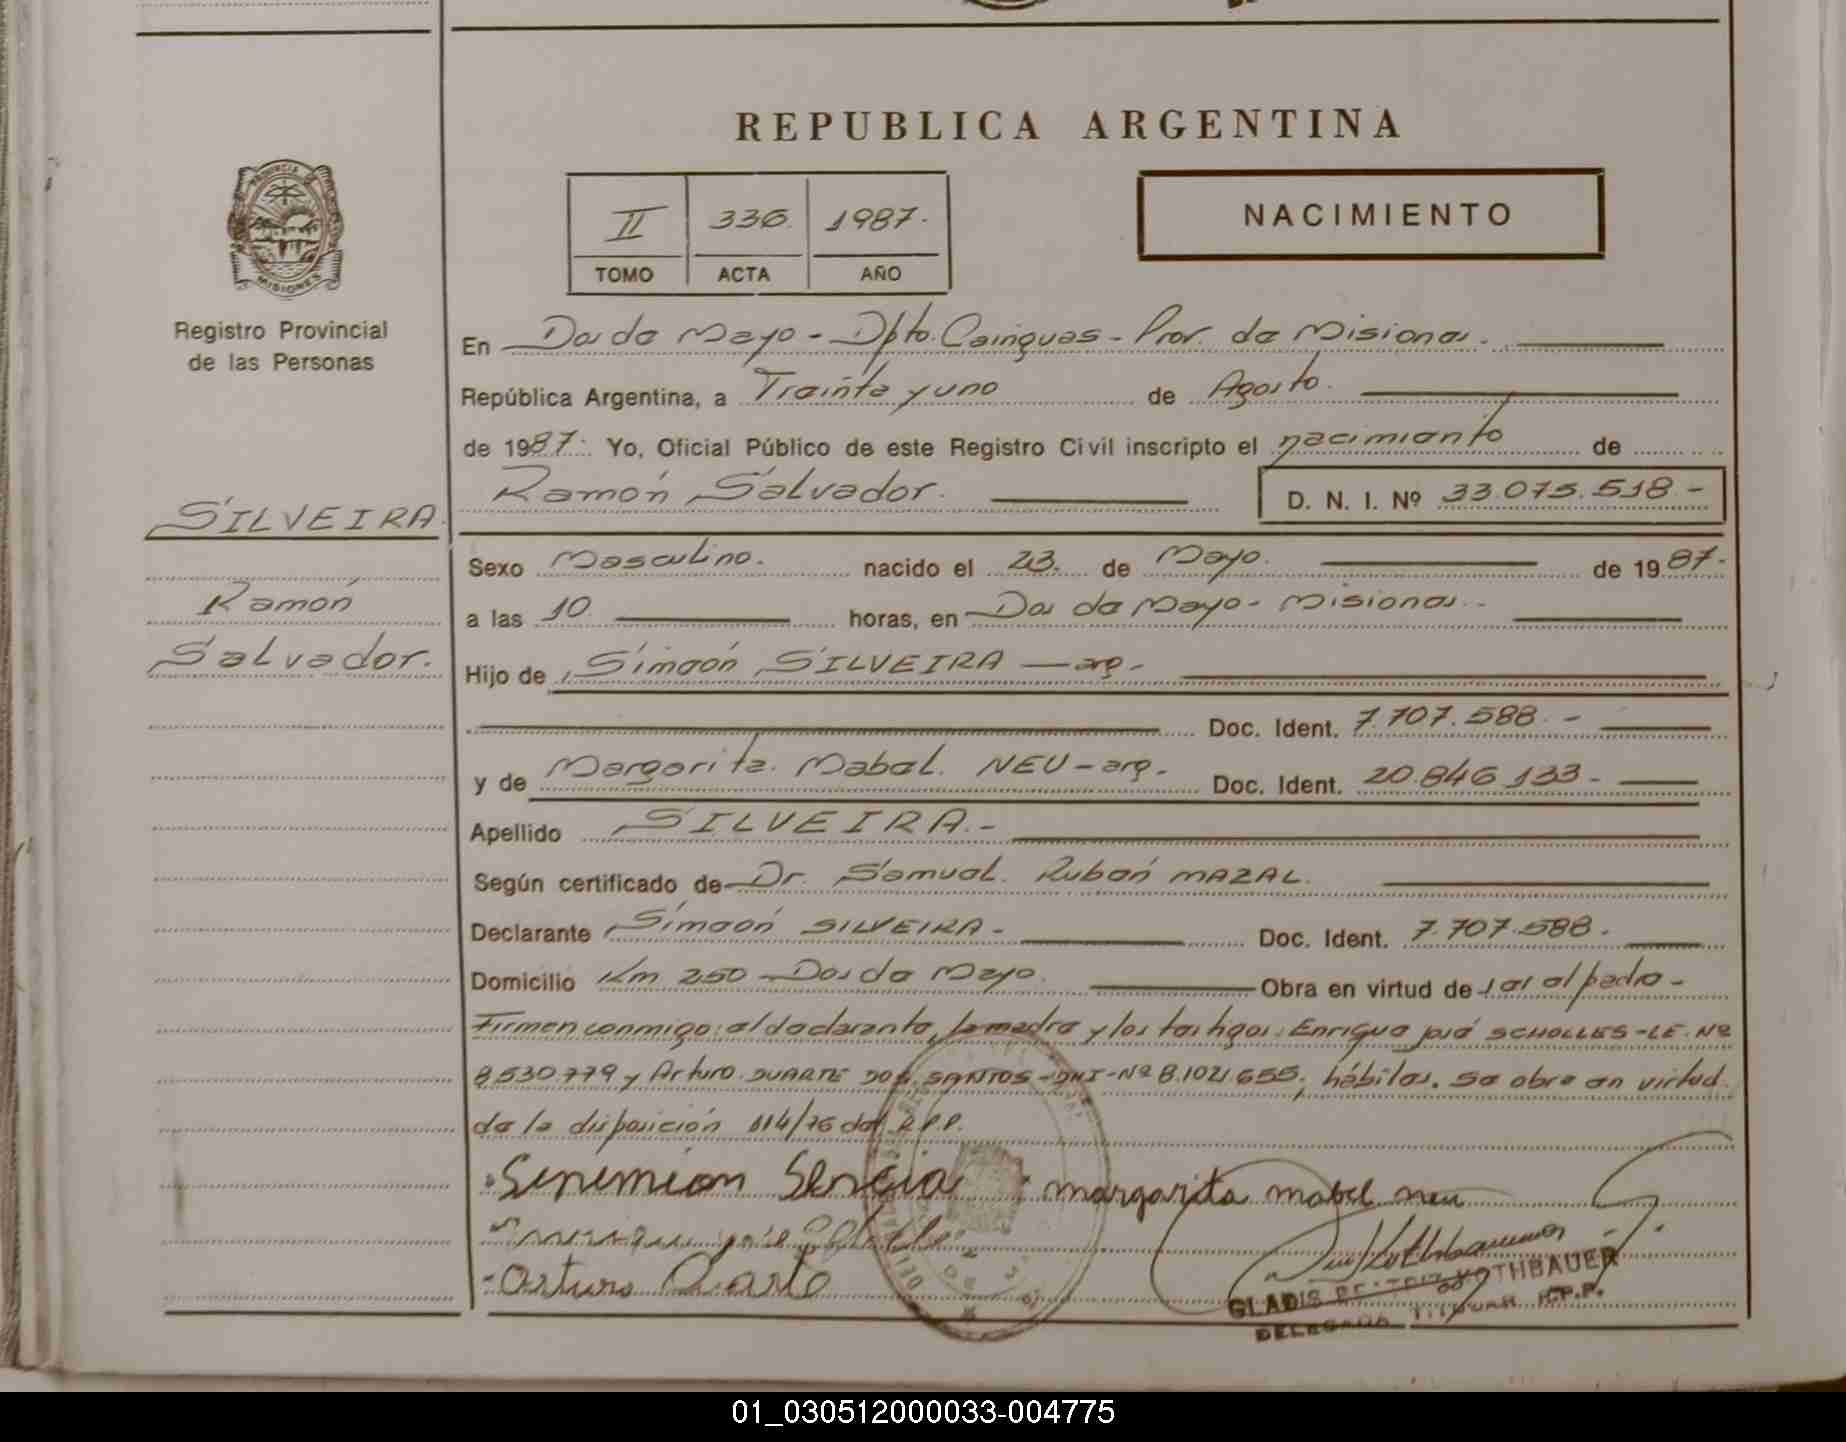 REPUBLICA ARGENTINA
PROVINCIA DE
MISIONES
Registro Provincial
de las Personas
II 336. 1987.
TOMO ACTA AÑO
NACIMIENTO
En Dos de Mayo - Dpto. Cainguas - Prov. de Misiones.
República Argentina, a Treinta y uno de Agosto.
de 1987. Yo, Oficial Público de este Registro Civil inscripto el nacimiento de
Ramón Salvador. D. N. I. Nº 33.075.518-
SILVEIRA
Ramón
Salvador.
Sexo Masculino. nacido el 23. de Mayo. de 1987.
a las 10 horas, en Dos de Mayo - Misiones.-
Hijo de Simeón SILVEIRA — arg.
Doc. Ident. 7.707.588.-
y de Margarita. Mabel. NEU - arg. Doc. Ident. 20.846.133-
Apellido SILVEIRA.-
Según certificado de Dr. Samuel. Rubén MAZAL.
Declarante Simeón SILVEIRA- Doc. Ident. 7.707.588.
Domicilio Km 250 Dos de Mayo. Obra en virtud de ser el padre-
Firmen conmigo: el declarante, la madre y los testigos: Enrique José SCHOLLES-LE. Nº
8530779 y Arturo DUARTE DOS SANTOS-DNI-Nº 8.102.655; hábiles. Se obre en virtud
de la disposición 114/76 del R.P.P.
margarita mabel neu
Arturo Duarte
GLADIS BEATRIZ KOTHBAUER
DELEGADA TITULAR R.P.P.
01_030512000033-004775